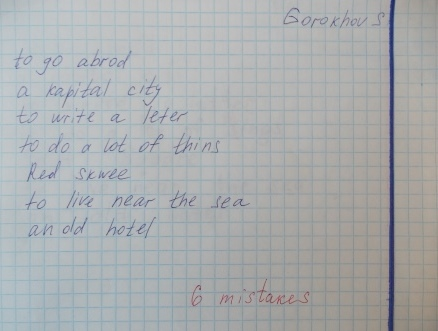 Gorokhov S
to go abrod
a kapital city
to write a leter
to do a lot of thins
Red skwee
to live near the sea
an old hotel
6 mistakes